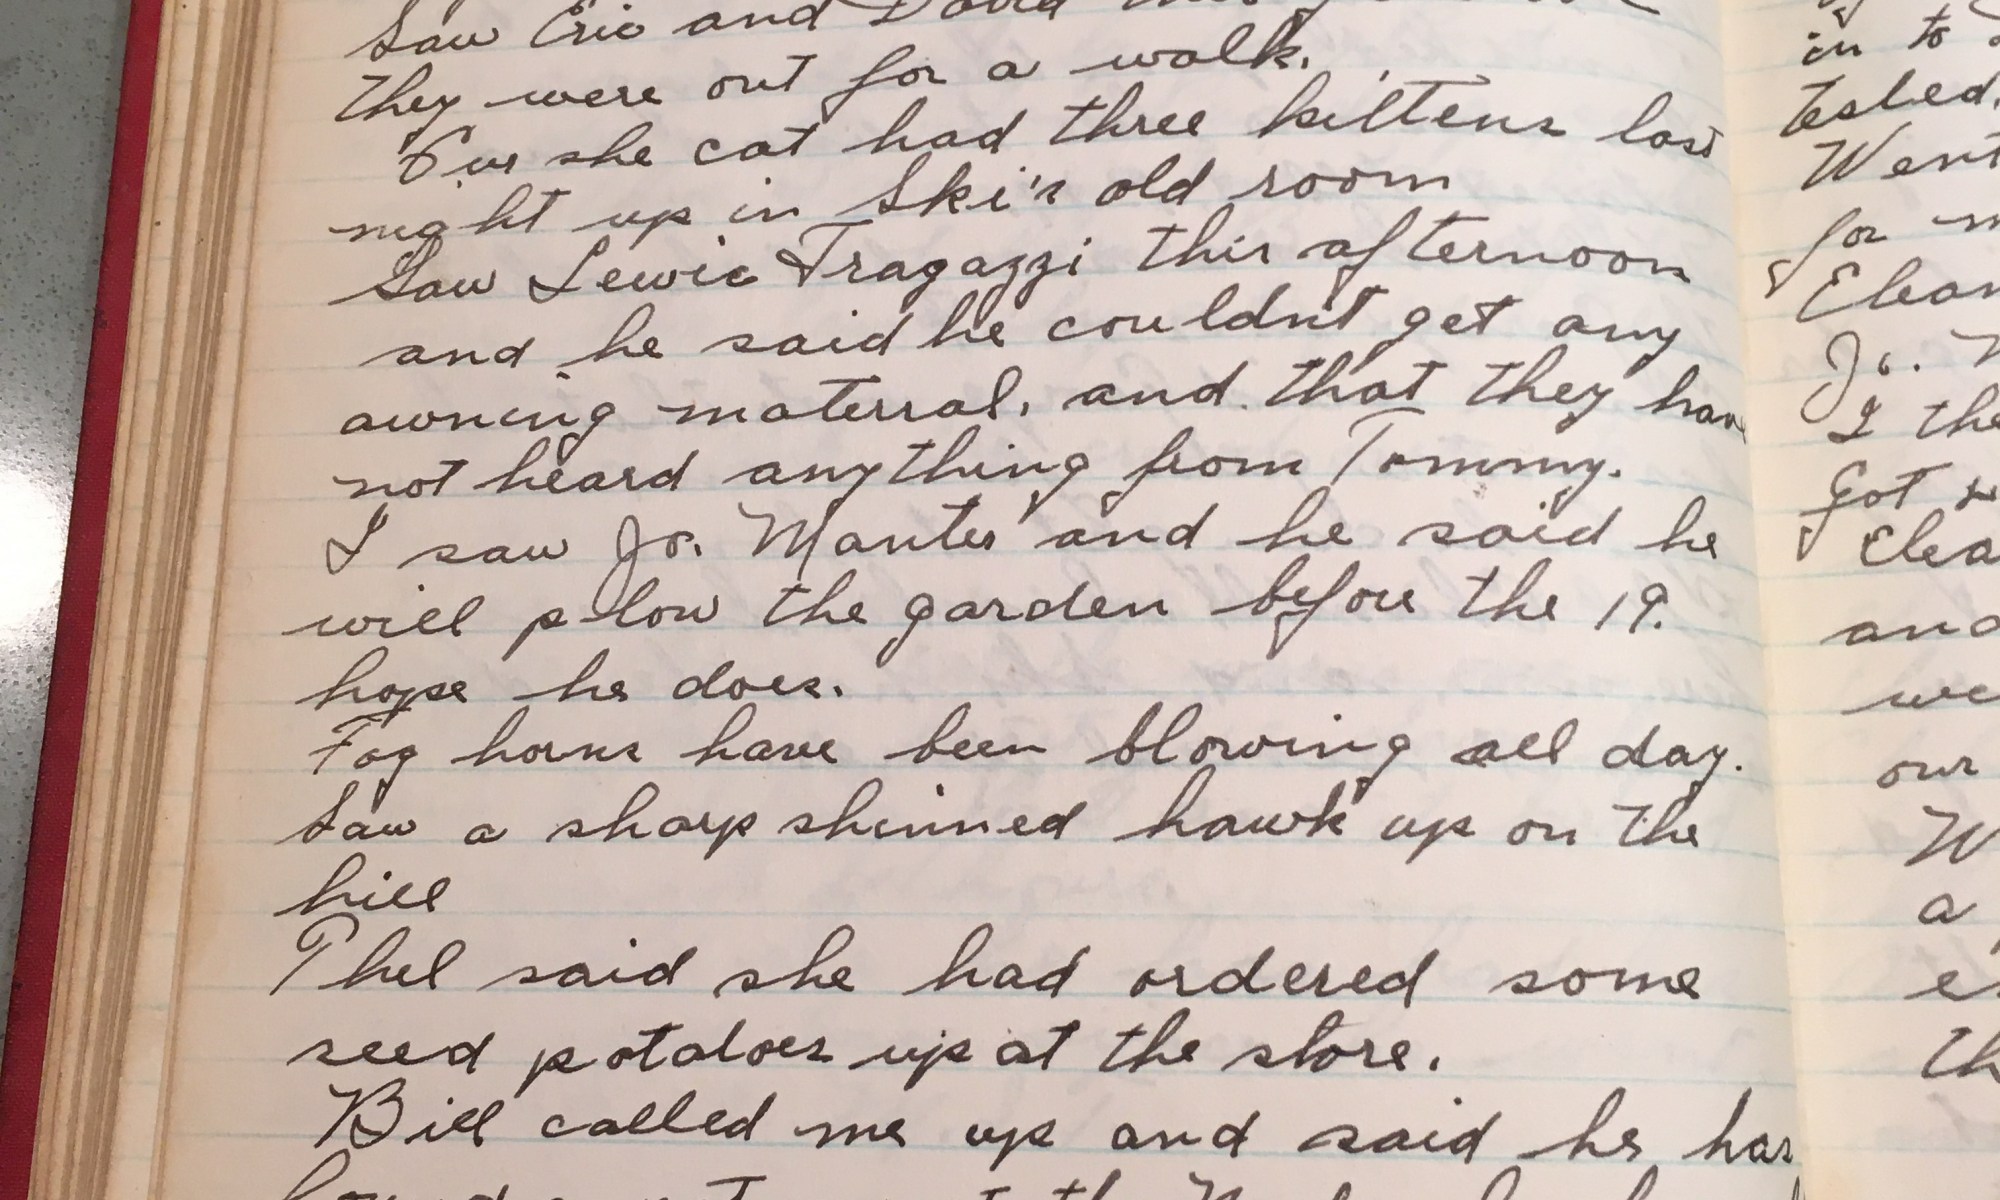 Saw Eric and David
They were out for a walk.
Our she cat had three kittens last
night up in Ski's old room
Saw Lewie Fragazzi this afternoon
and he said he couldn't get any
awning material, and that they have
not heard anything from Tommy.
I saw Jo. Mantes and he said he
will plow the garden before the 19.
hope he does.
Fog horns have been blowing all day.
Saw a sharp shinned hawk up on the
hill
Phel said she had ordered some
seed potatoes up at the store.
Bill called me up and said he has
in to
tested.
Went
for
Jo.
I
Got
and
our
W
a